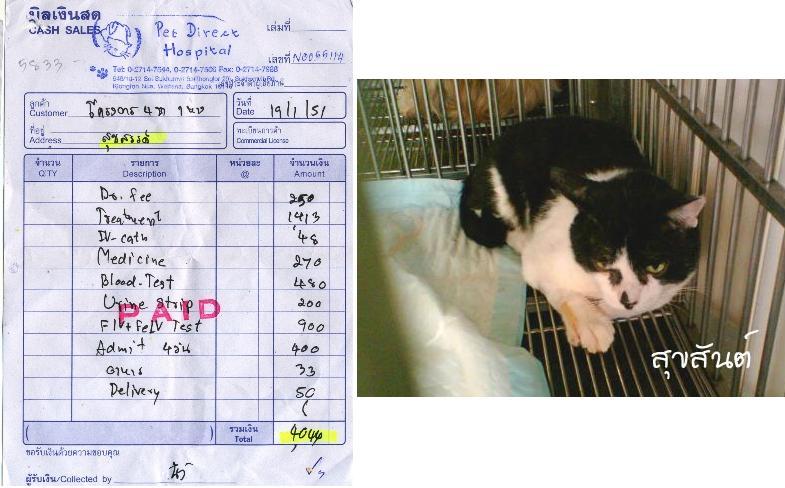 บิลเงินสด
CASH SALES
เล่มที่
Pet Direct
Hospital
เลขที่
5833
Tel: 0-2714-7544, 0-2714-7506 Fax: 0-2714-7988
ลูกค้า
Customer โครงการ 4 ขา
วันที่
Date 19/1/51
ที่อยู่
Address สุขสันต์
ทะเบียนการค้า
Commercial License
จำนวน รายการ หน่วยละ จำนวนเงิน
Q'TY Description @ Amount
Dr. fee 250
Treatment 1413
IV-cath 48
Medicine 270
Blood-Test 480
Urine Strip 200
PAID
FIV+FeLV Test 900
Admit 4วัน 400
อาหาร 33
Delivery 50
( ) รวมเงิน
Total 4044
ขอรับเงินด้วยความขอบคุณ
ผู้รับเงิน/Collected by
สุขสันต์